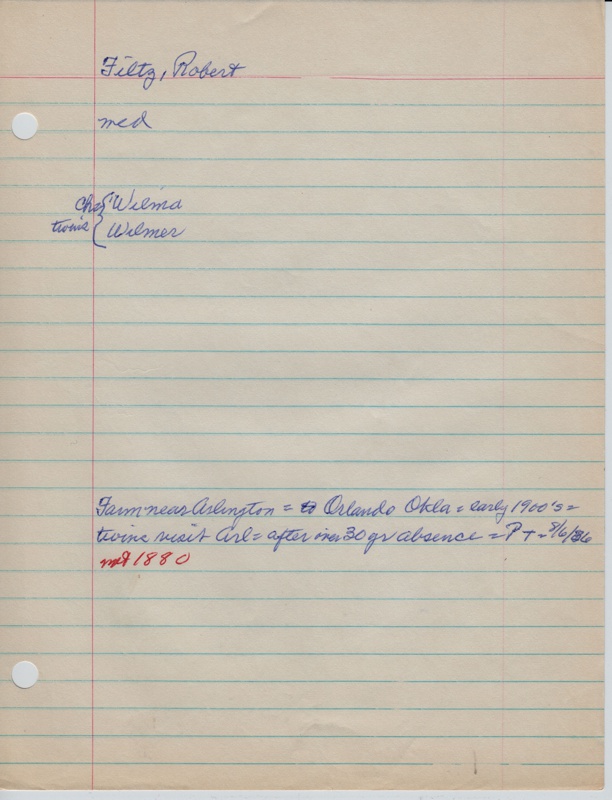 Filtz, Robert
med
Chs { Wilma
twins { Wilmer
Farm near Arlington = to Orlando Okla = early 1900's =
twins visit Arl = after over 30 yr absence = P + - 8/6/36
not 1880